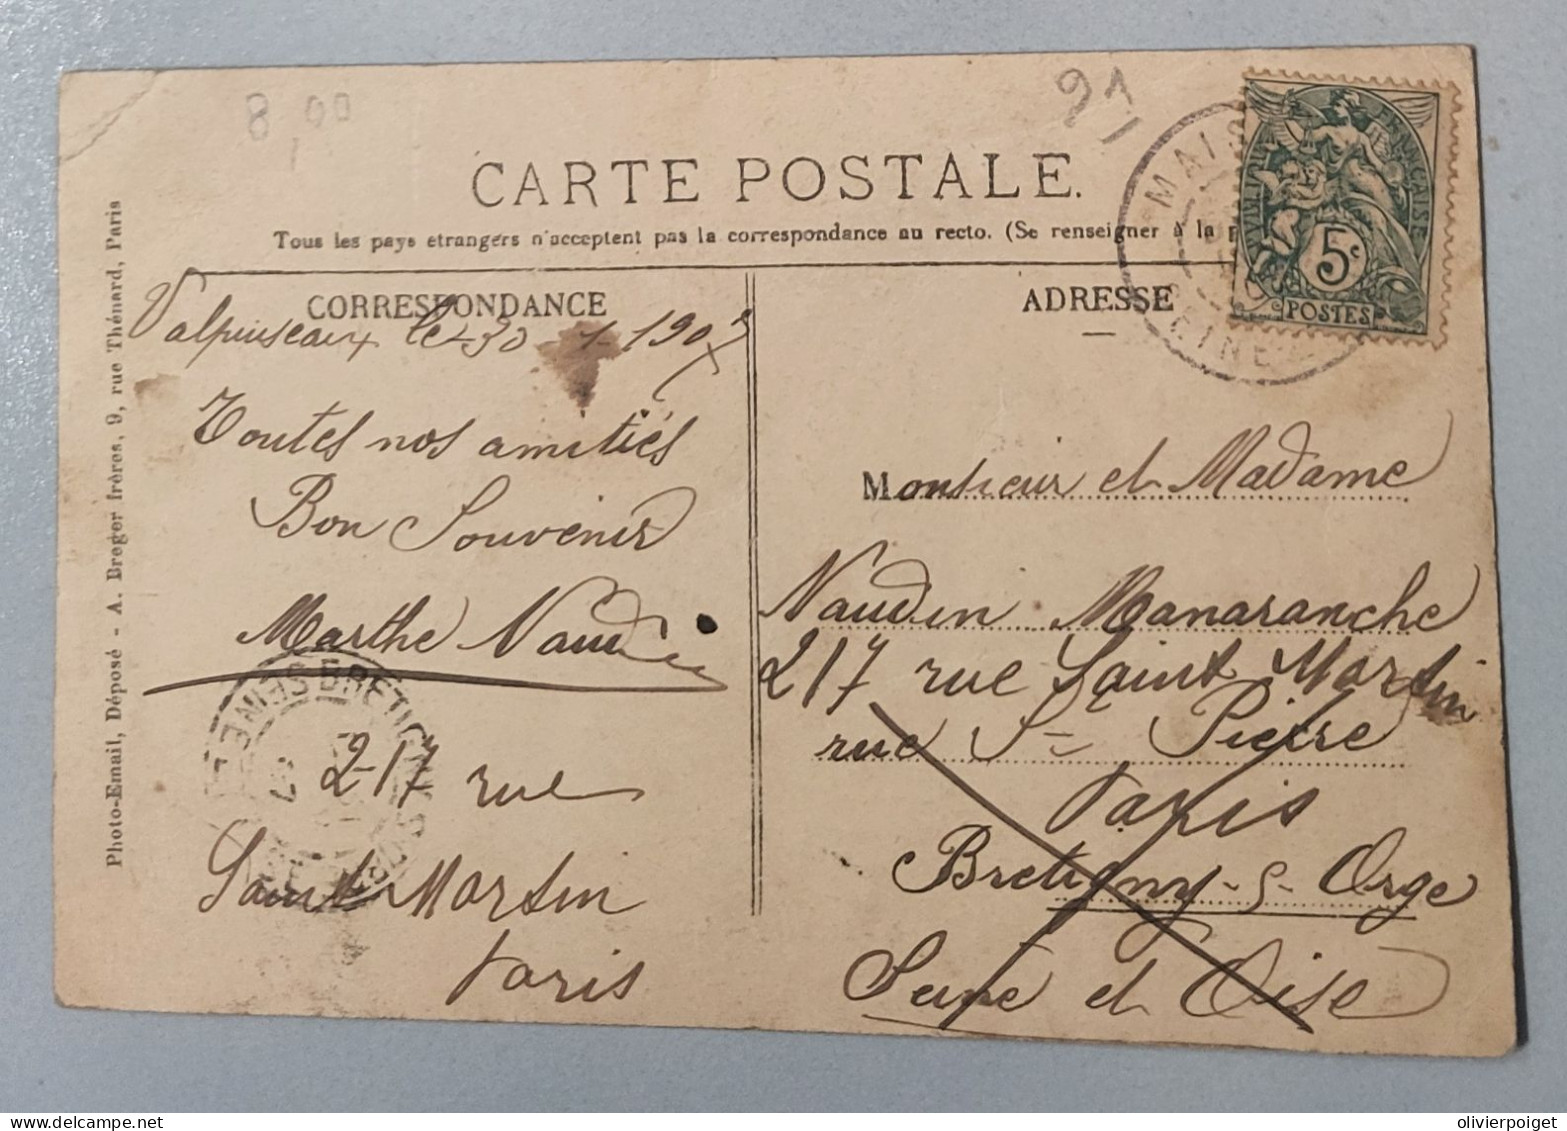 8,00
91
CARTE POSTALE.
Tous les pays etrangers n'acceptent pas la correspondance au recto. (Se renseigner à la
CORRESPONDANCE
ADRESSE
MAIS
SEINE
RÉPUBLIQUE FRANÇAISE
5c
POSTES
Photo-Email, Déposé - A. Breger frères, 9, rue Thénard, Paris
Valpuiseaux le 30 1 1907
Toutes nos amitiés
Bon Souvenir
Marthe Naudin
217 rue
Saint Martin
Paris
BRETIGNY
SEINE-ET
Monsieur et Madame
Naudin Manaranche
217 rue Saint Martin
rue St Pierre
Paris
Bretigny-s-Orge
Seine et Oise
olivierpoiget